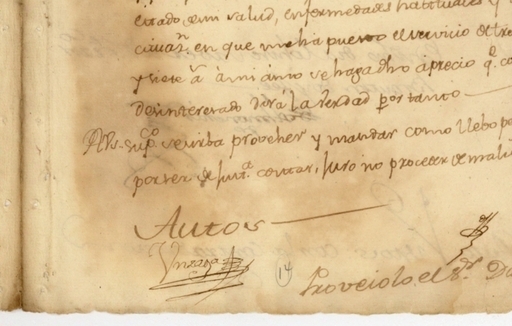 estado de mi salud, enfermedades habituales y
en que me ha puesto el servicio de tre
y siete a. á mi amo se haga dho aprecio q.e co
desinteresado dirá la verdad por tanto
A Vs. sup.co se sirba proveher y mandar como llebo pe
por ser de just.a costas, juro no proceder de mali
Autos
14
Proveiolo el S.r